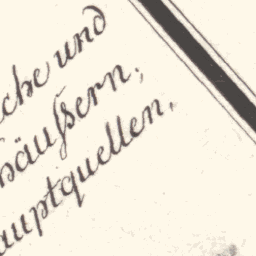 che und
häuſsern,
auptquellen,